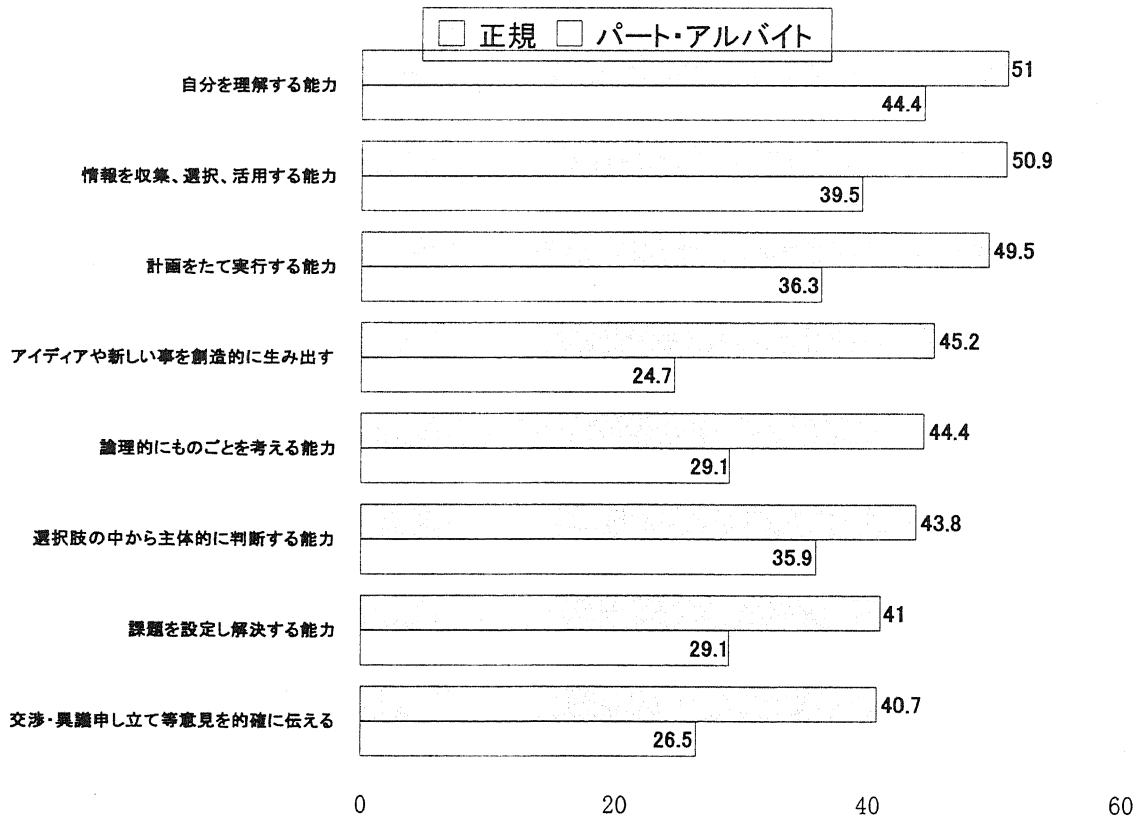 正規 パート・アルバイト
自分を理解する能力
51
44.4
情報を収集、選択、活用する能力
50.9
39.5
計画をたて実行する能力
49.5
36.3
アイディアや新しい事を創造的に生み出す
45.2
24.7
論理的にものごとを考える能力
44.4
29.1
選択肢の中から主体的に判断する能力
43.8
35.9
課題を設定し解決する能力
41
29.1
交渉・異議申し立て等意見を的確に伝える
40.7
26.5
0 20 40 60